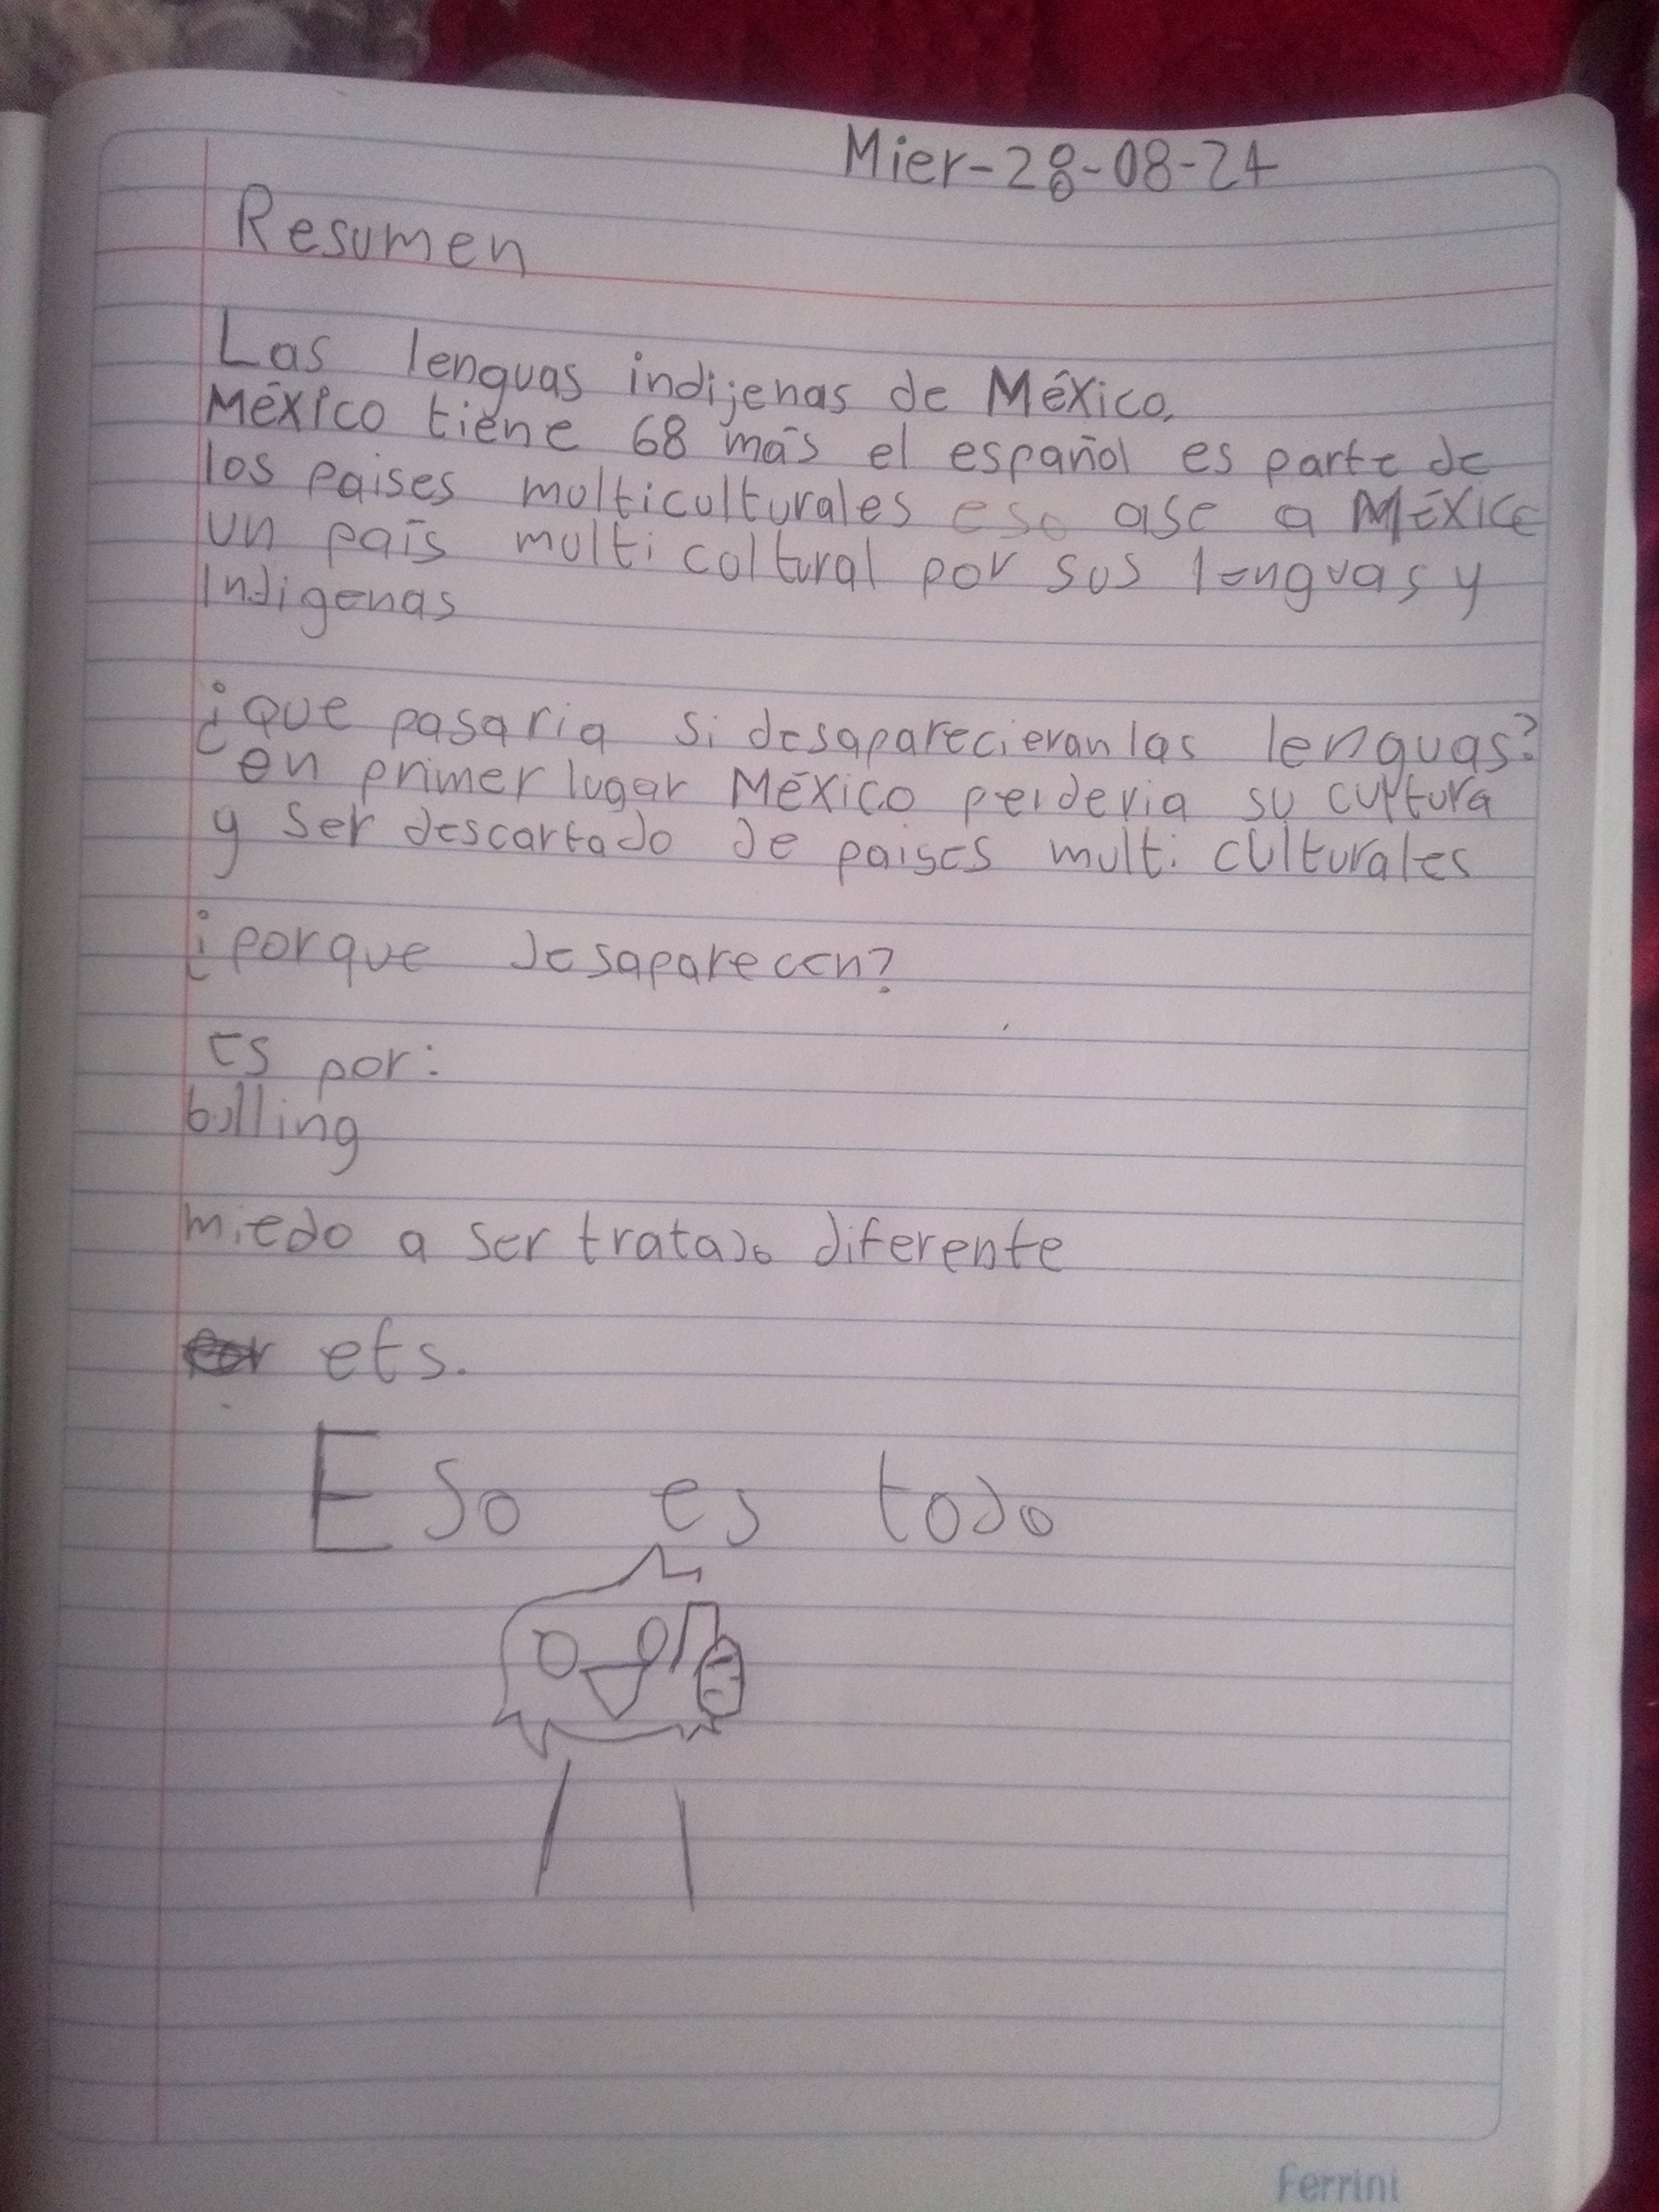 Mier-28-08-24
Resumen
Las lenguas indijenas de México.
México tiene 68 más el español es parte de
los paises multiculturales eso ase a MÉXICO
un país multi coltural por sus lenguas y
Indigenas
¿que pasaria si desaparecieran las lenguas?
en primer lugar México perderia su cultura
y ser descartado de paises multi culturales
¿porque desaparecen?
Es por:
bulling
miedo a ser tratado diferente
ets.
Eso es todo
Ferrini